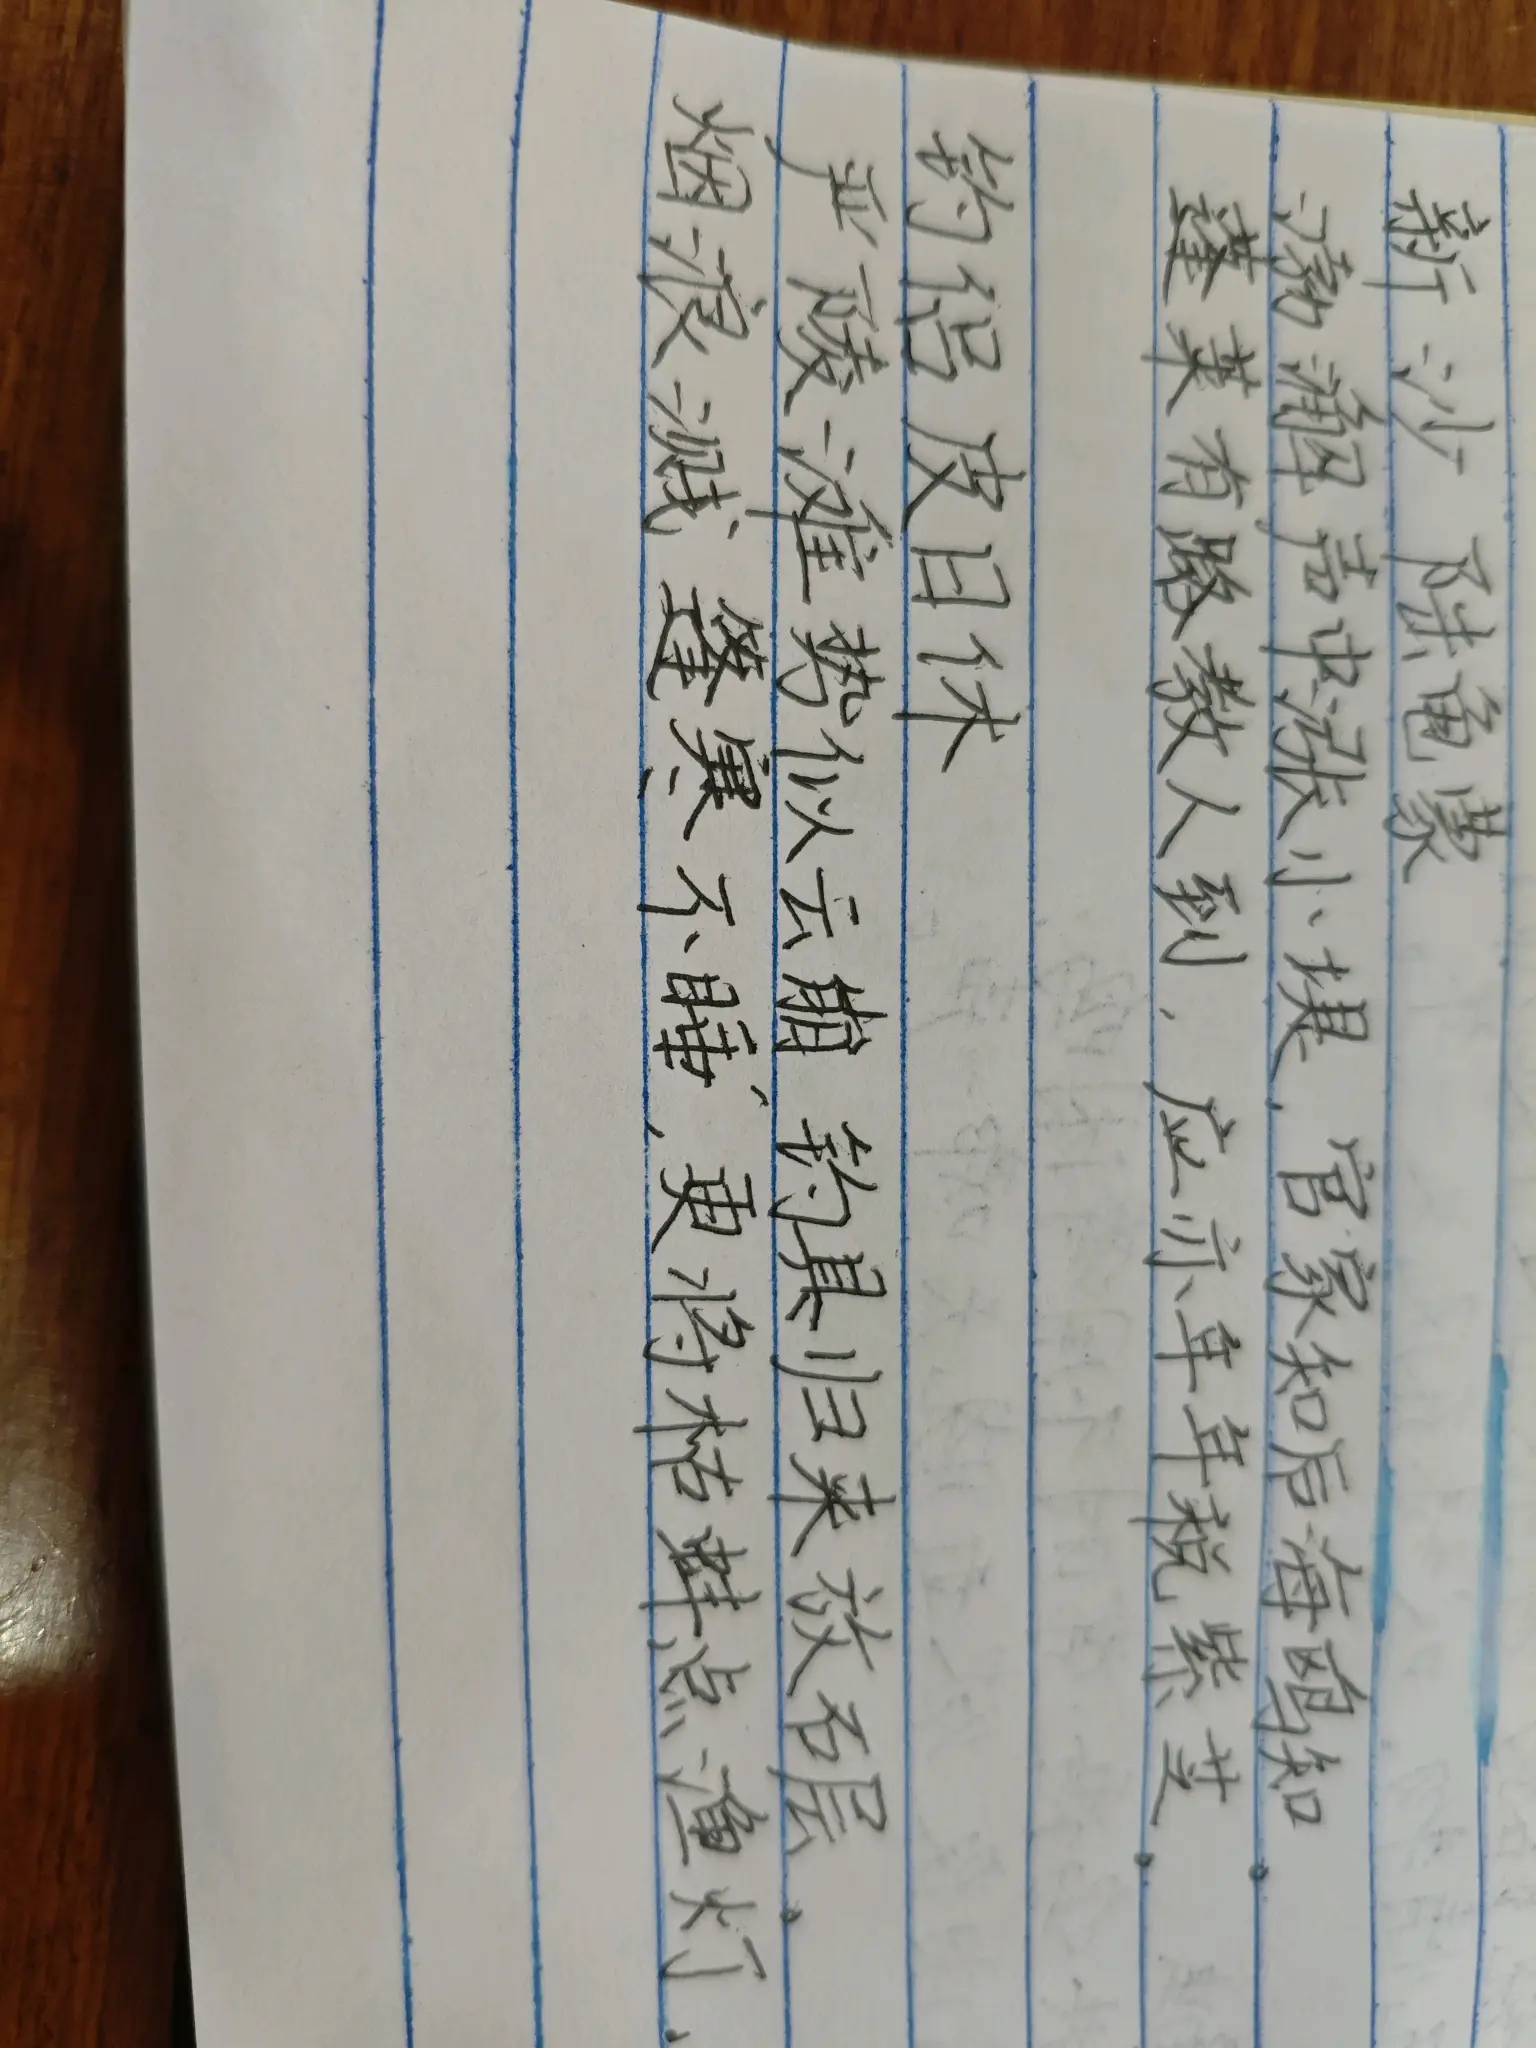 新沙 陆龟蒙
渤澥声中涨小堤，官家知后海鸥知。
蓬莱有路教人到，应亦年年税紫芝。
钓侣 皮日休
严陵滩势似云崩 钓具归来放石层。
烟浪溅篷寒不睡，更将枯蚌点渔灯，